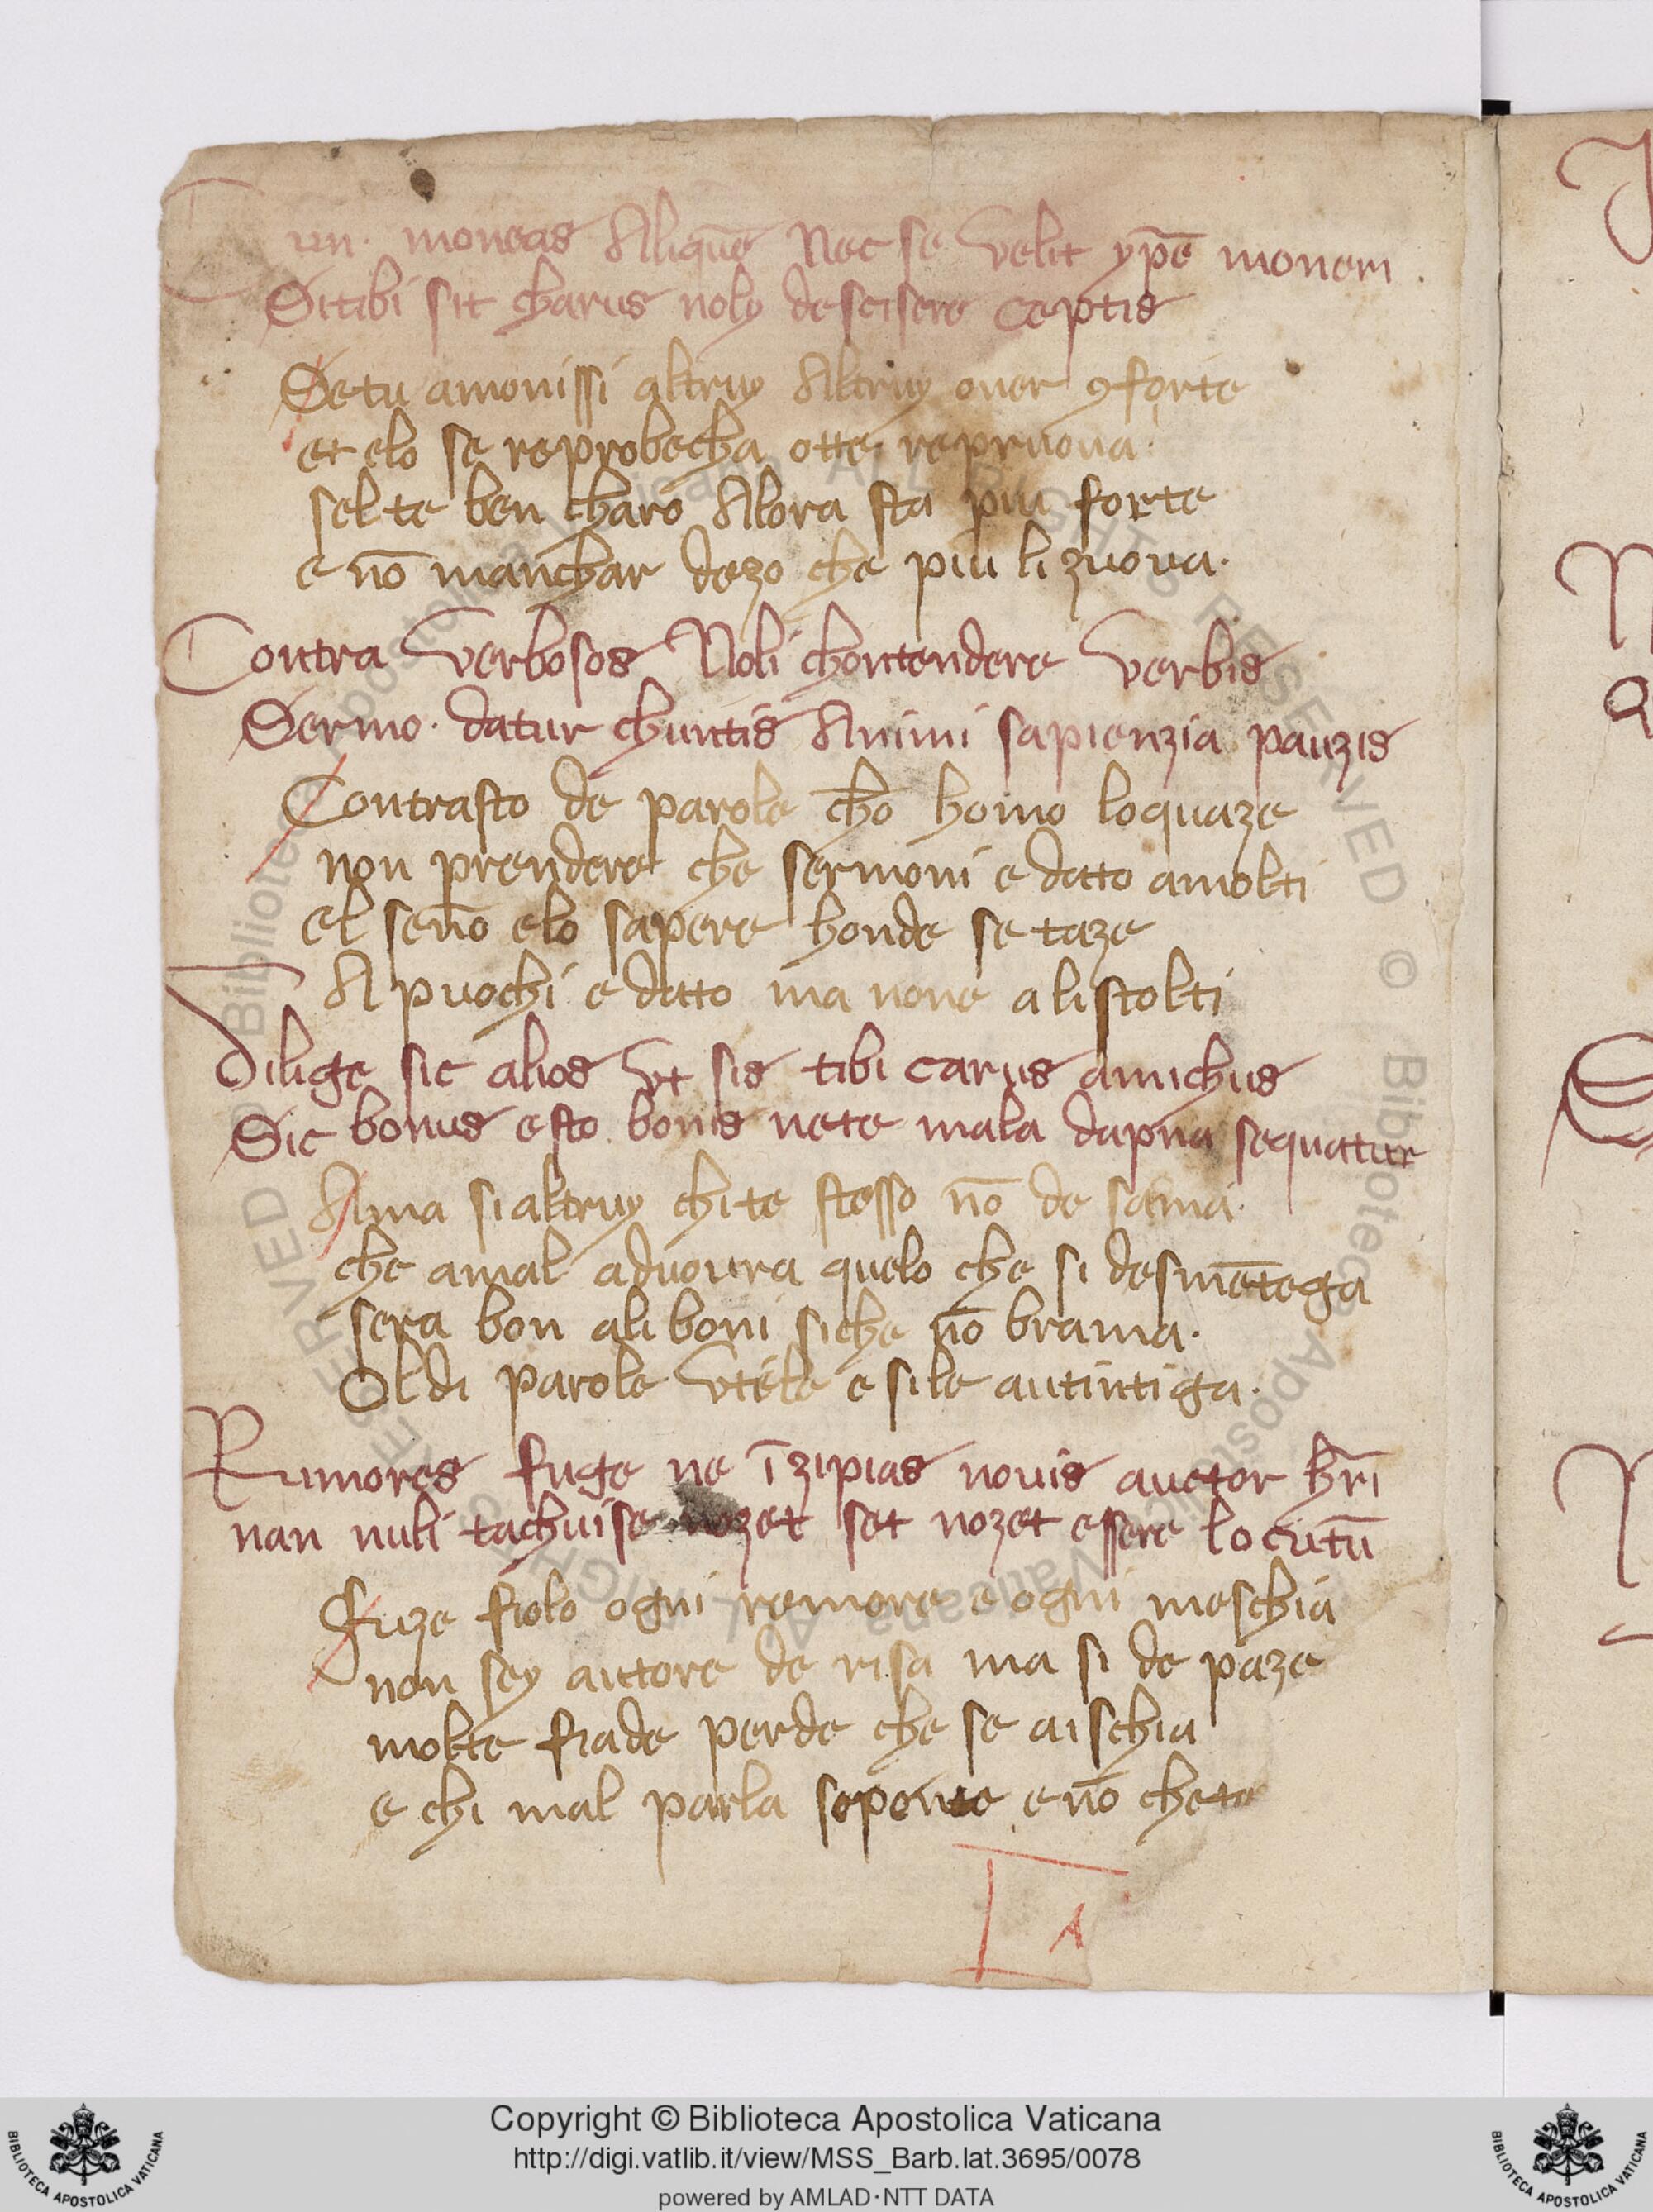 Cum moneas Aliquē Nec se velit ypē moneri
Si tibi sit charus noly descisere ceptis
Se tu amonissi altruy Altruy over ꝯforte
et elo se reprobecha otte repruova
sel te ben charo Alora sta piu forte
e nō manchar dezo che piu li zuova
Contra verbosos Noli chontendere verbis
Sermo datur chuntis Animi sapienzia pauzis
Contrasto de parole chō homo loquaze
non prendere che sermoni e dato amolti
el seño elo sapere honde se taze
A puochi e dato ma none a li stolti
Dilige sic alios vt sis tibi carus amichus
Sic bonus esto bonis nete mala dapna sequatur
Ama si altruy chi te stesso nō de sama
che amal aduovra quelo che si desmētega
sera bon ali boni siche nō brama
Oldi parole vtele e si le autintiga
Rumores fuge ne īzipias novis auctor hr̄i
nan nuli tachuise nozet set nozet essere locutū
Fuze fiolo ogni remore e ogni meschia
non sey autore de risa ma si de paze
molte fiade perde che se aischia
e chi mal parla sepente e nō cheto
Copyright © Biblioteca Apostolica Vaticana
http://digi.vatlib.it/view/MSS_Barb.lat.3695/0078
powered by AMLAD·NTT DATA